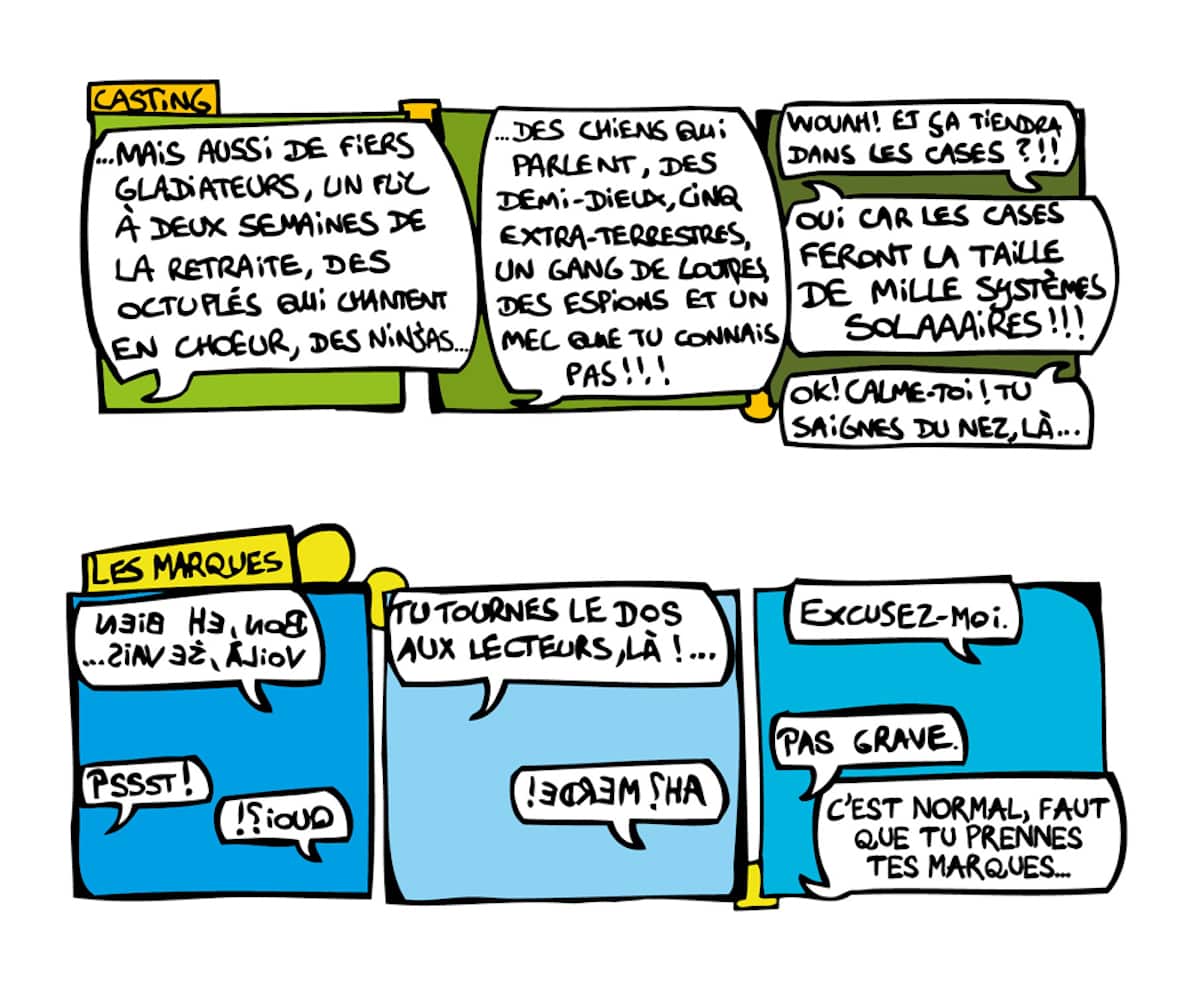 CASTING
...MAIS AUSSI DE FIERS
GLADIATEURS, UN FLIC
À DEUX SEMAINES DE
LA RETRAITE, DES
OCTUPLÉS QUI CHANTENT
EN CHOEUR, DES NINJAS...
...DES CHIENS QUI
PARLENT, DES
DEMI-DIEUX, CINQ
EXTRA-TERRESTRES,
UN GANG DE LOUTRES,
DES ESPIONS ET UN
MEC QUE TU CONNAIS
PAS!!!!
WOUAH! ET ÇA TIENDRA
DANS LES CASES ?!!
OUI CAR LES CASES
FERONT LA TAILLE
DE MILLE SYSTÈMES
SOLAAAIRES!!!
OK! CALME-TOI! TU
SAIGNES DU NEZ, LÀ...
LES MARQUES
BON, EH BIEN
VOILÀ, JE VAIS...
PSSST!
QUOI?!
TU TOURNES LE DOS
AUX LECTEURS, LÀ!...
AH? MERDE!
EXCUSEZ-MOI.
PAS GRAVE.
C'EST NORMAL, FAUT
QUE TU PRENNES
TES MARQUES...